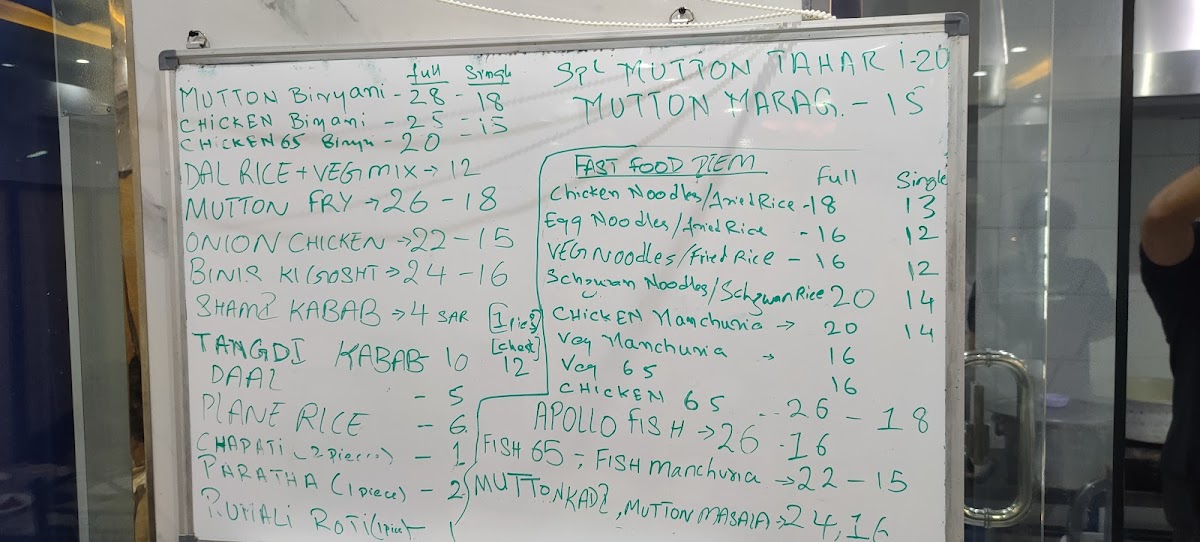 full Single
MUTTON Biryani - 28 - 18
CHICKEN Biryani - 25 - 15
CHICKEN 65 Biryni - 20
DAL RICE + VEG MIX → 12
MUTTON FRY → 26 - 18
ONION CHICKEN → 22 - 15
BINIS KI GOSHT → 24 - 16
SHAMI KABAB → 4 SAR [1 pies]
TANGDI KABAB - 10 [chest] 12
DAAL - 5
PLANE RICE - 6
CHAPATI (2 pieces) - 1
PARATHA (1 piece) - 2
RUMALI ROTI (1 pice) - 1
Spl MUTTON TAHARI - 20
MUTTON MARAG. - 15
FAST FOOD ITEM Full Single
Chicken Noodles/fried Rice - 18 13
Egg Noodles/fried Rice - 16 12
VEG Noodles/Fried Rice - 16 12
Schzwan Noodles/Schzwan Rice 20 14
CHICKEN Manchuria → 20 14
Veg Manchuria → 16
Veg 65 16
CHICKEN 65 - 26 - 18
APOLLO FISH → 26 - 16
FISH 65 - FISH manchuria → 22 - 15
MUTTON KADI, MUTTON MASALA → 24, 16